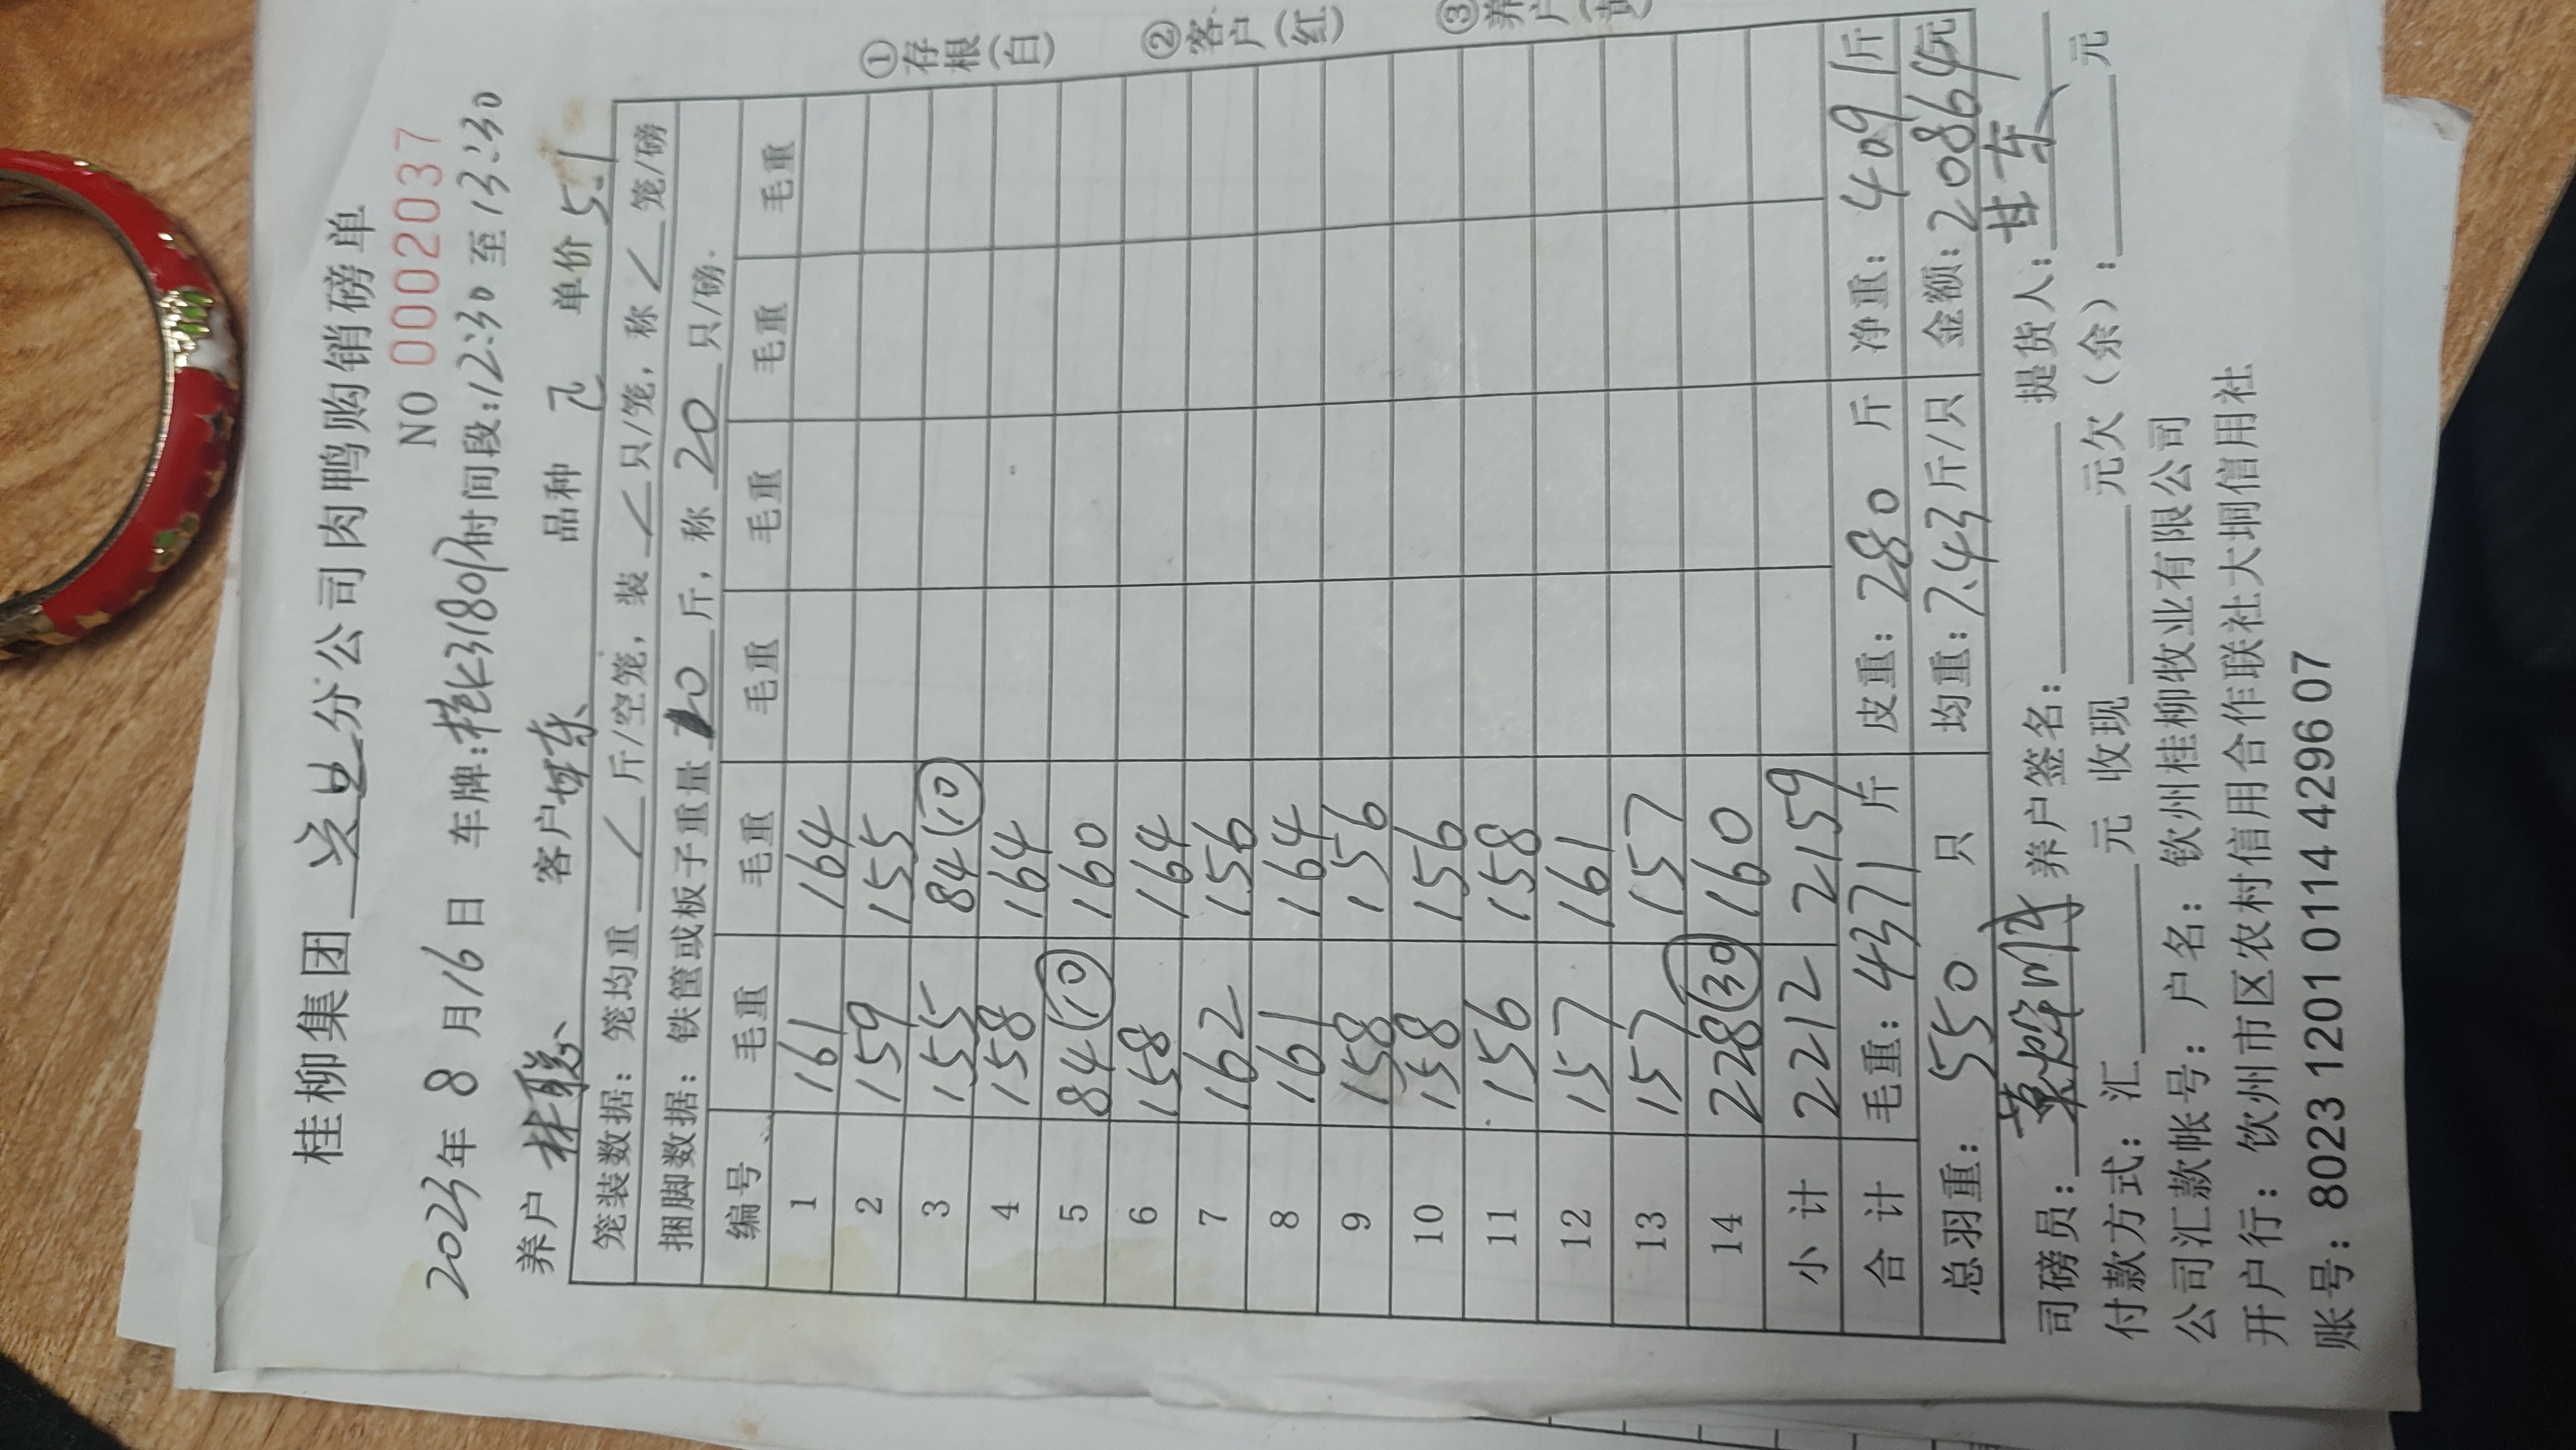 桂柳集团 分公司肉鸭购销磅单
NO 0002037
2023年 8月16日 车牌:桂L31801 时间段:12:30至13:30
养户 林聪 客户 甘东 品种 乙 单价 5.1
笼装数据:笼均重 / 斤/空笼,装 / 只/笼,称 / 笼/磅
捆脚数据:铁筐或板子重量 10 斤,称 20 只/磅.
编号 毛重 毛重 毛重 毛重 毛重 毛重
1 161 164
2 159 155
3 155 84(10)
4 158 164
5 84(10) 160
6 158 164
7 162 156
8 161 164
9 158 156
10 158 156
11 156 158
12 157 161
13 157 157
14 228(30) 160
小计 2212 2159
合计 毛重:4371 斤 皮重:280 斤 净重:4091斤
总羽重:550 只 均重:7.43斤/只 金额:20864元
司磅员: 养户签名: 提货人:甘东
付款方式:汇 元 收现 元欠(余): 元
公司汇款帐号:户名:钦州桂柳牧业有限公司
开户行:钦州市区农村信用合作联社大垌信用社
账号:8023 1201 0114 4296 07
①存根(白)
②客户(红)
③养户(黄)